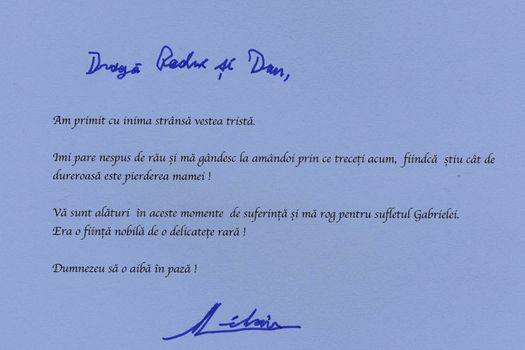 Dragă Radu și Dan,
Am primit cu inima strânsă vestea tristă.
Imi pare nespus de rău și mă gândesc la amândoi prin ce treceți acum, fiindcă știu cât de
dureroasă este pierderea mamei !
Vă sunt alături în aceste momente de suferință și mă rog pentru sufletul Gabrielei.
Era o ființă nobilă de o delicatețe rară !
Dumnezeu să o aibă în pază !